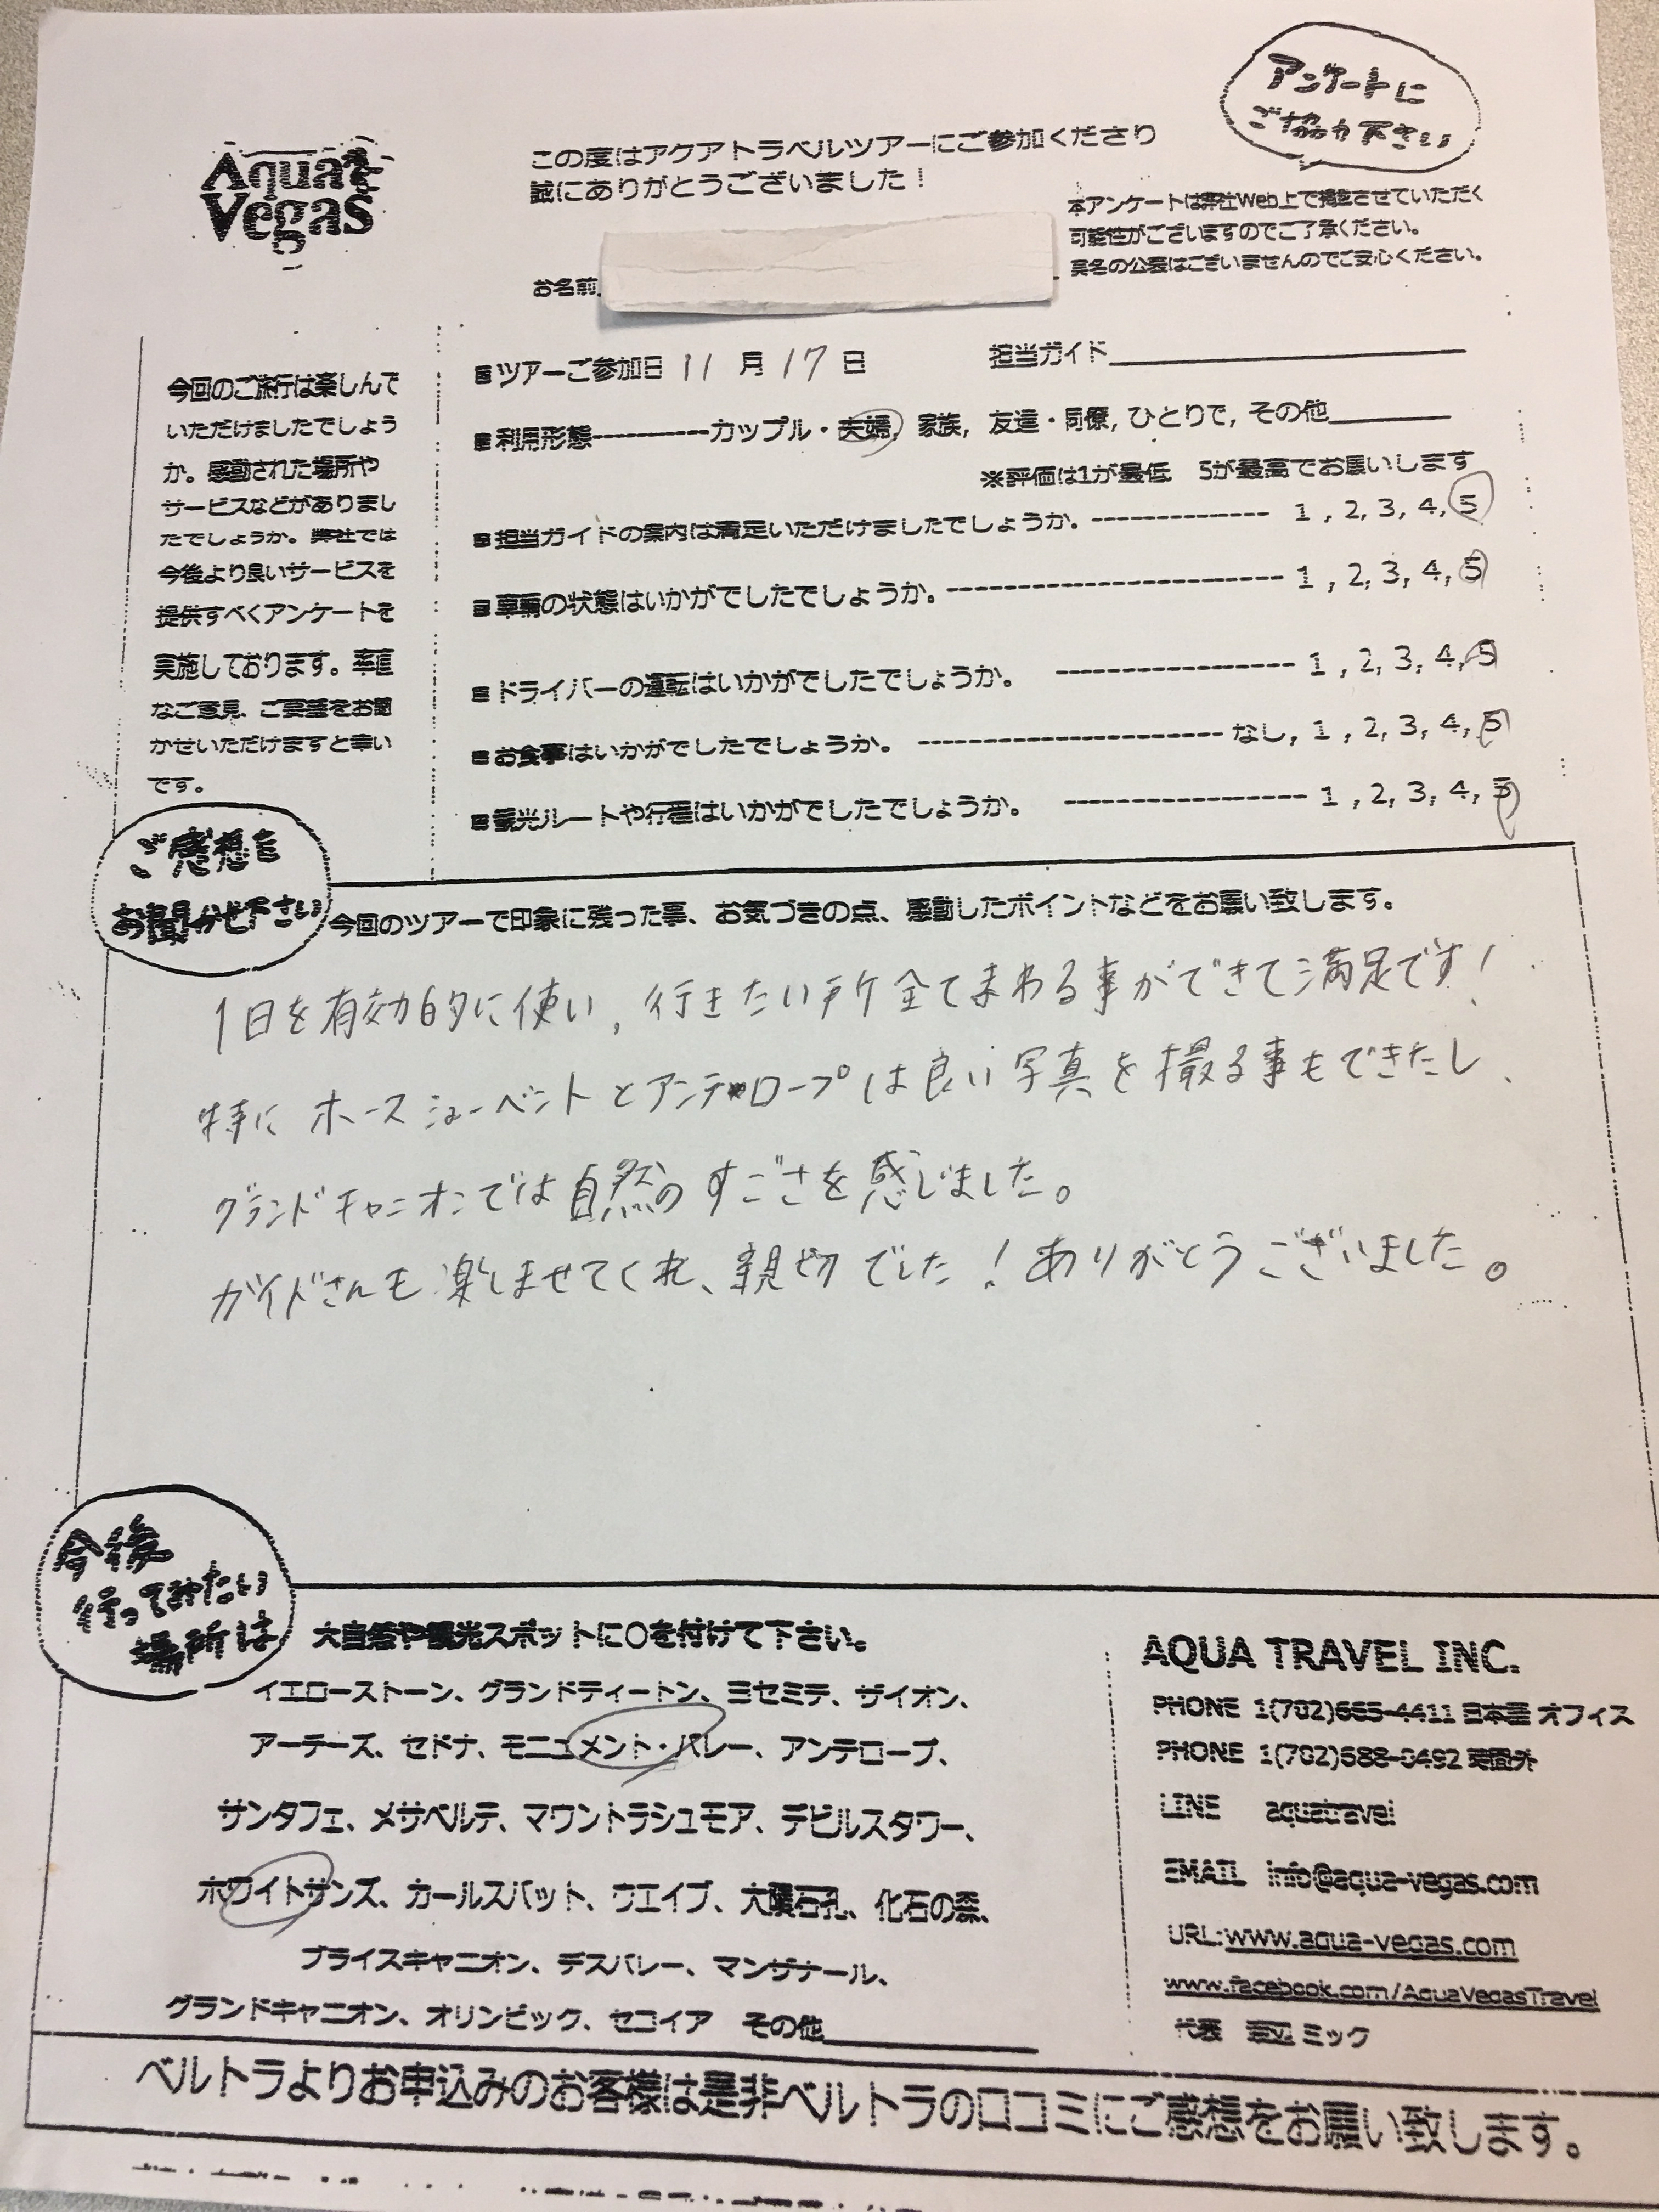 アンケートに
ご協力下さい
Aqua
Vegas
この度はアクアトラベルツアーにご参加くださり
誠にありがとうございました！
本アンケートは弊社Web上で掲載させていただく
可能性がございますのでご了承ください。
実名の公表はございませんのでご安心ください。
お名前
今回のご旅行は楽しんで
いただけましたでしょう
か。感動された場所や
サービスなどがありまし
たでしょうか。弊社では
今後より良いサービスを
提供すべくアンケートを
実施しております。率直
なご意見、ご要望をお聞
かせいただけますと幸い
です。
ツアーご参加日 11 月 17 日 担当ガイド
利用形態----------カップル・夫婦, 家族, 友達・同僚, ひとりで, その他
※評価は1が最低 5が最高でお願いします
担当ガイドの案内は満足いただけましたでしょうか。-------------- 1 , 2, 3, 4, 5
車輌の状態はいかがでしたでしょうか。-------------------------- 1 , 2, 3, 4, 5
ドライバーの運転はいかがでしたでしょうか。 ------------------ 1 , 2, 3, 4, 5
お食事はいかがでしたでしょうか。 ----------------------- なし, 1 , 2, 3, 4, 5
観光ルートや行程はいかがでしたでしょうか。 ------------------ 1 , 2, 3, 4, 5
ご感想を
お聞かせ下さい
今回のツアーで印象に残った事、お気づきの点、感動したポイントなどをお願い致します。
1日を有効的に使い、行きたい所全てまわる事ができて満足です！
特に ホースシューベントとアンテロープは良い写真を撮る事もできたし、
グランドキャニオンでは自然のすごさを感じました。
ガイドさんも楽しませてくれ、親切でした！ありがとうございました。
今後
行ってみたい
場所は
大自然や観光スポットに○を付けて下さい。
イエローストーン、グランドティートン、ヨセミテ、ザイオン、
アーチーズ、セドナ、モニュメント・バレー、アンテロープ、
サンタフェ、メサベルデ、マウントラシュモア、デビルスタワー、
ホワイトサンズ、カールスバット、ウエイブ、大隕石孔、化石の森、
ブライスキャニオン、デスバレー、マンザナール、
グランドキャニオン、オリンピック、セコイア その他
AQUA TRAVEL INC.
PHONE 1(702)665-4411 日本語 オフィス
PHONE 1(702)588-0492 時間外
LINE aquatravel
EMAIL info@aqua-vegas.com
URL:www.aqua-vegas.com
www.facebook.com/AquaVegasTravel
代表 渡辺 ミック
ベルトラよりお申込みのお客様は是非ベルトラの口コミにご感想をお願い致します。